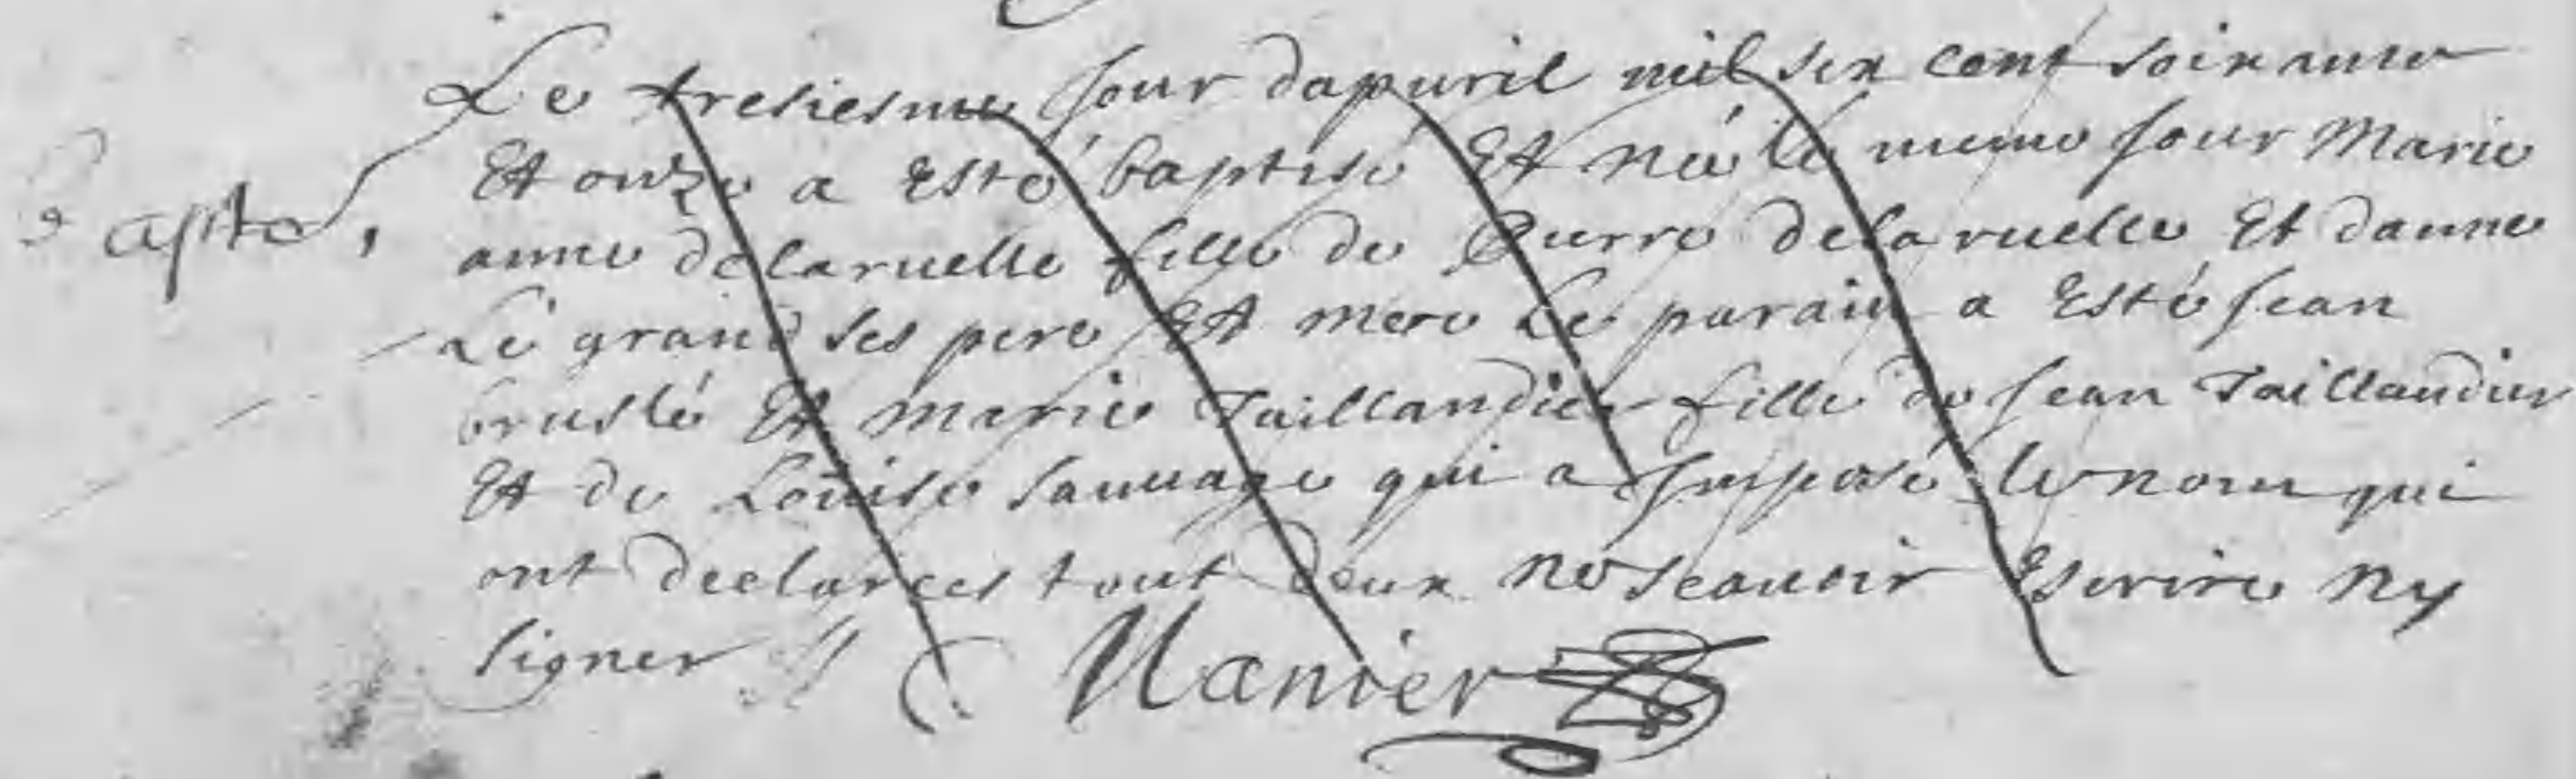 Le tresiesme Jour dapuril mil six cent soixante
Et onze a Esté baptisé Et née le meme Jour Marie
Bapte,
anne delaruelle fille de Pierre delaruelle Et danne
Le grand ses pere Et mere Le parain a Esté Jean
bruslé Et marie Taillandier fille de Jean Taillandier
Et de Louise Sauuage qui a Imposé le nom qui
ont declarees tout deux ne scauoir Escrire ny
signer